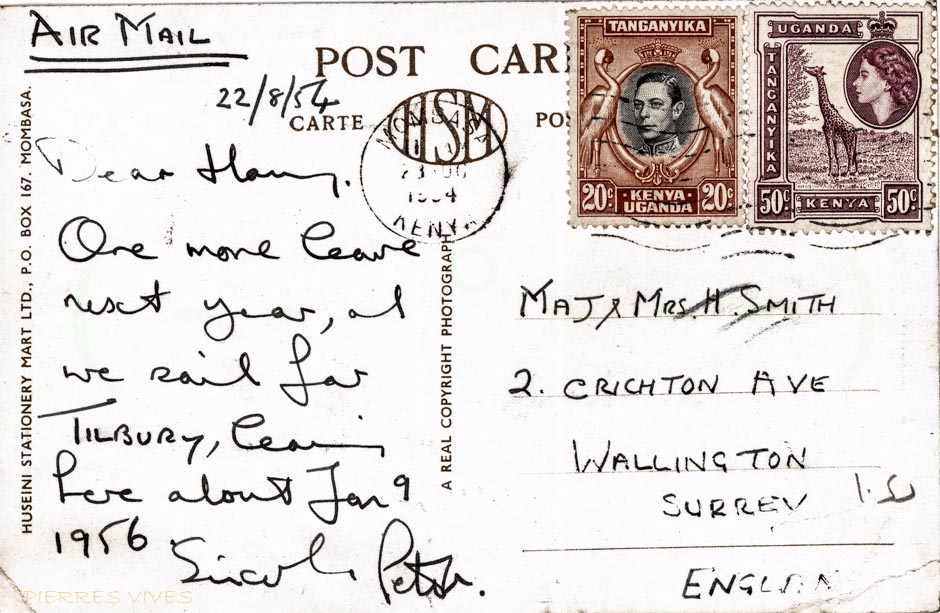 AIR MAIL
POST CAR
22/8/54
CARTE POS
HSM
MOMBASA
1954
KENYA
TANGANYIKA
20c KENYA· 20c
UGANDA
UGANDA
TANGANYIKA
50c KENYA 50c
HUSEINI STATIONERY MART LTD., P.O. BOX 167. MOMBASA.
Dear Harry.
One more leave
next year, and
we sail for
TILBURY, leaving
here about Jan 9
1956.
Peter.
A REAL COPYRIGHT PHOTOGRAPH
MAJ & MRS. H. SMITH
2. CRICHTON AVE
WALLINGTON
SURREY
ENGLAN
PIERRES VIVES